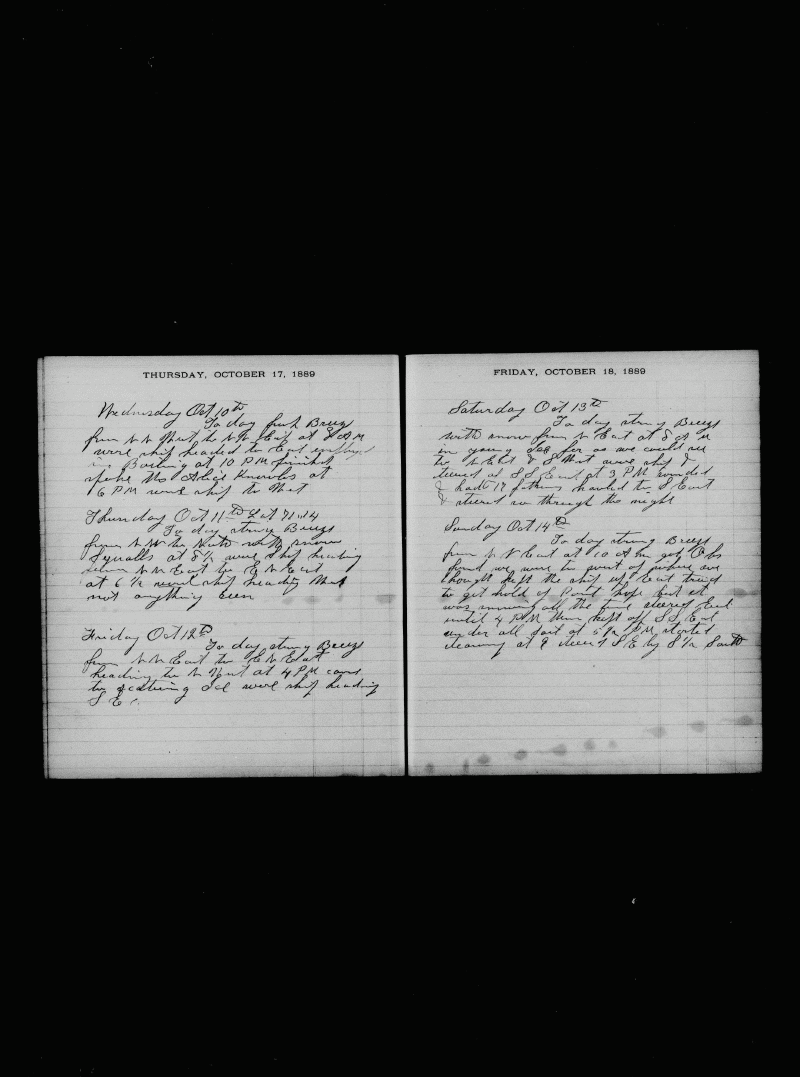 THURSDAY, OCTOBER 17, 1889
Wednesday Oct 10th
To day fresh Breeze
from N N West to N N East at 8 A M
wore ship headed to East
in Boiling at 10 P M finished
spoke the Alice Knowles at
6 P M wore ship to West
Thursday Oct 11th Lat 71.14
To day strong Breeze
from N W to North with snow
Squalls at 8 ½ wore ship heading
from N N East to E N East
at 6 ½ wore ship heading West
not anything seen
Friday Oct 12th
To day strong Breeze
from N N East to E N East
heading to N West at 4 P M came
to Ice wore ship heading
S E
FRIDAY, OCTOBER 18, 1889
Saturday Oct 13th
To day strong Breeze
with snow from N East at 8 A M
in young Ice far as we could see
to N East & S West wore ship &
steered at S S East at 3 P M sounded
& had 17 fathoms hauled to S East
& steered so through the night
Sunday Oct 14th
To day strong Breeze
from N N East at 10 A M got Obs
found we were to west of where we
thought kept the ship up East tried
to get hold of Point hope but it
was snowing all the time steered East
until 4 P M then kept off S S East
under all sail at 5 ½ P M started
cleaning at 9 steered S E by S ½ South